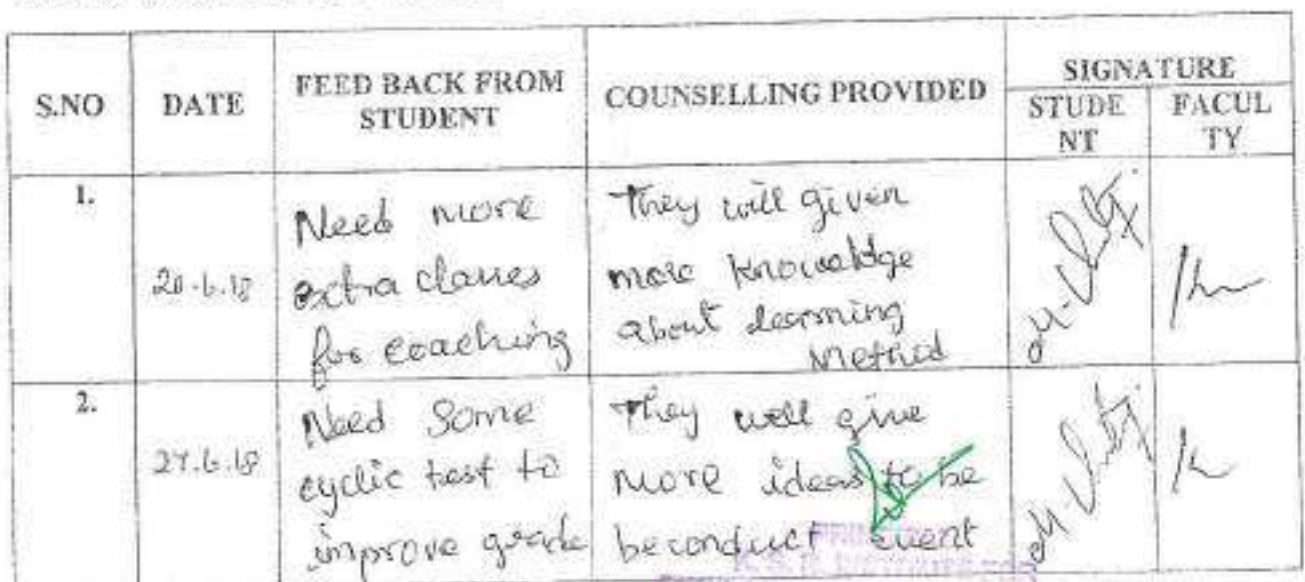 S.NO DATE FEED BACK FROM STUDENT COUNSELLING PROVIDED SIGNATURE
STUDE NT FACUL TY
1. 20.6.18 Need more
extra classes
for coaching
They will given
more knowealdge
about learning
Method
2. 27.6.18 Need Some
cyclic test to
improve grade
They will give
more ideas to be
be conduct event